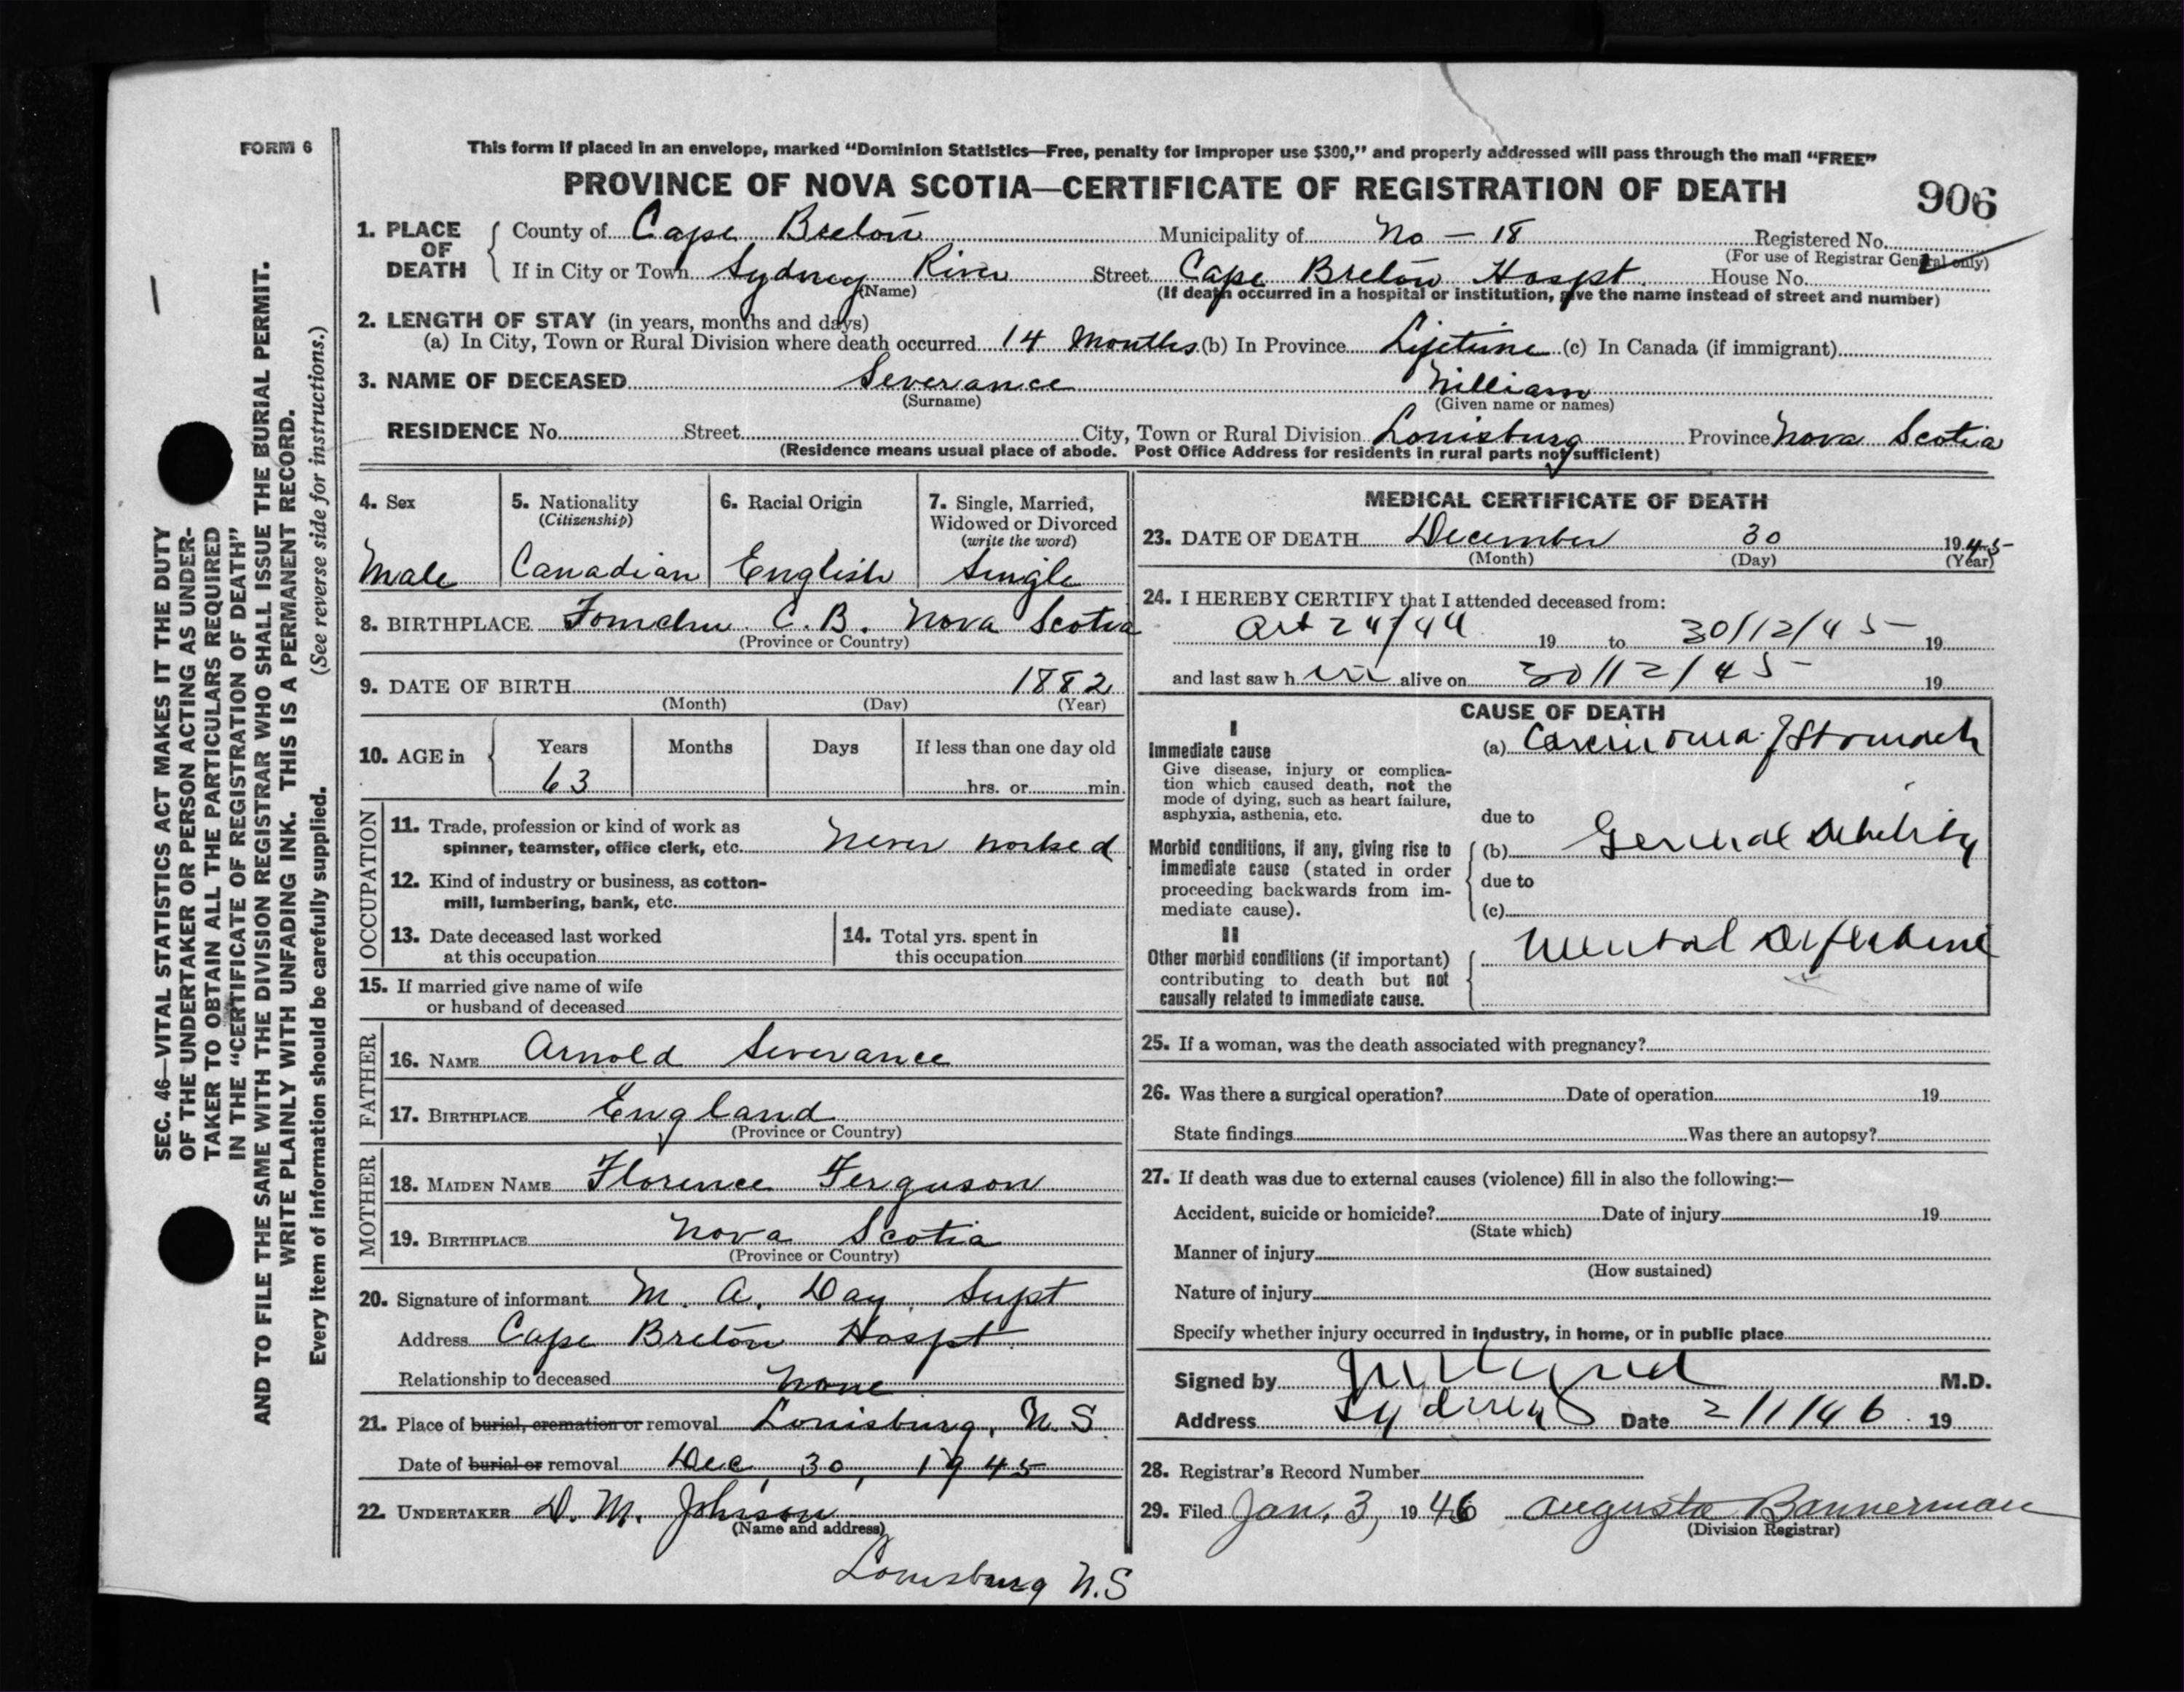 FORM 6
This form if placed in an envelope, marked “Dominion Statistics—Free, penalty for improper use $300,” and properly addressed will pass through the mail “FREE”
PROVINCE OF NOVA SCOTIA—CERTIFICATE OF REGISTRATION OF DEATH
906
1. PLACE OF DEATH
County of Cape Breton Municipality of No - 18 Registered No.
(For use of Registrar General only)
If in City or Town Sydney River Street Cape Breton Hospt. House No.
(Name) (If death occurred in a hospital or institution, give the name instead of street and number)
2. LENGTH OF STAY (in years, months and days)
(a) In City, Town or Rural Division where death occurred 14 Months (b) In Province Lifetime (c) In Canada (if immigrant)
3. NAME OF DECEASED Severance William
(Surname) (Given name or names)
RESIDENCE No. Street City, Town or Rural Division Louisburg Province Nova Scotia
(Residence means usual place of abode. Post Office Address for residents in rural parts not sufficient)
4. Sex
Male
5. Nationality
(Citizenship)
Canadian
6. Racial Origin
English
7. Single, Married,
Widowed or Divorced
(write the word)
Single
8. BIRTHPLACE C. B. Nova Scotia
(Province or Country)
9. DATE OF BIRTH 1882
(Month) (Day) (Year)
10. AGE in Years Months Days If less than one day old
63 hrs. or min.
OCCUPATION
11. Trade, profession or kind of work as
spinner, teamster, office clerk, etc. Never worked
12. Kind of industry or business, as cotton-
mill, lumbering, bank, etc.
13. Date deceased last worked
at this occupation
14. Total yrs. spent in
this occupation
15. If married give name of wife
or husband of deceased
FATHER
16. NAME Arnold Severance
17. BIRTHPLACE England
(Province or Country)
MOTHER
18. MAIDEN NAME Florence Ferguson
19. BIRTHPLACE Nova Scotia
(Province or Country)
20. Signature of informant M. A. Day, Supt
Address Cape Breton Hospt.
Relationship to deceased None
21. Place of burial, cremation or removal Louisburg, N.S.
Date of burial or removal Dec, 30, 1945
22. UNDERTAKER D. M. Johnson
(Name and address)
Louisburg N.S
MEDICAL CERTIFICATE OF DEATH
23. DATE OF DEATH December 30 1945
(Month) (Day) (Year)
24. I HEREBY CERTIFY that I attended deceased from:
Oct 24/44 19 to 30/12/45 19
and last saw h im alive on 30/12/45 19
CAUSE OF DEATH
I
Immediate cause
Give disease, injury or complica-
tion which caused death, not the
mode of dying, such as heart failure,
asphyxia, asthenia, etc.
(a) Carcinoma of Stomach
due to
Morbid conditions, if any, giving rise to
immediate cause (stated in order
proceeding backwards from im-
mediate cause).
(b) General Debility
due to
(c)
II
Other morbid conditions (if important)
contributing to death but not
causally related to immediate cause.
Mental
25. If a woman, was the death associated with pregnancy?
26. Was there a surgical operation? Date of operation 19
State findings Was there an autopsy?
27. If death was due to external causes (violence) fill in also the following:—
Accident, suicide or homicide? Date of injury 19
(State which)
Manner of injury
(How sustained)
Nature of injury
Specify whether injury occurred in industry, in home, or in public place
Signed by M.D.
Address Sydney Date 2/1/46 19
28. Registrar's Record Number
29. Filed Jan. 3, 1946 Augusta Bannerman
(Division Registrar)
SEC. 46—VITAL STATISTICS ACT MAKES IT THE DUTY
OF THE UNDERTAKER OR PERSON ACTING AS UNDER-
TAKER TO OBTAIN ALL THE PARTICULARS REQUIRED
IN THE “CERTIFICATE OF REGISTRATION OF DEATH”
AND TO FILE THE SAME WITH THE DIVISION REGISTRAR WHO SHALL ISSUE THE BURIAL PERMIT.
WRITE PLAINLY WITH UNFADING INK. THIS IS A PERMANENT RECORD.
Every item of information should be carefully supplied. (See reverse side for instructions.)